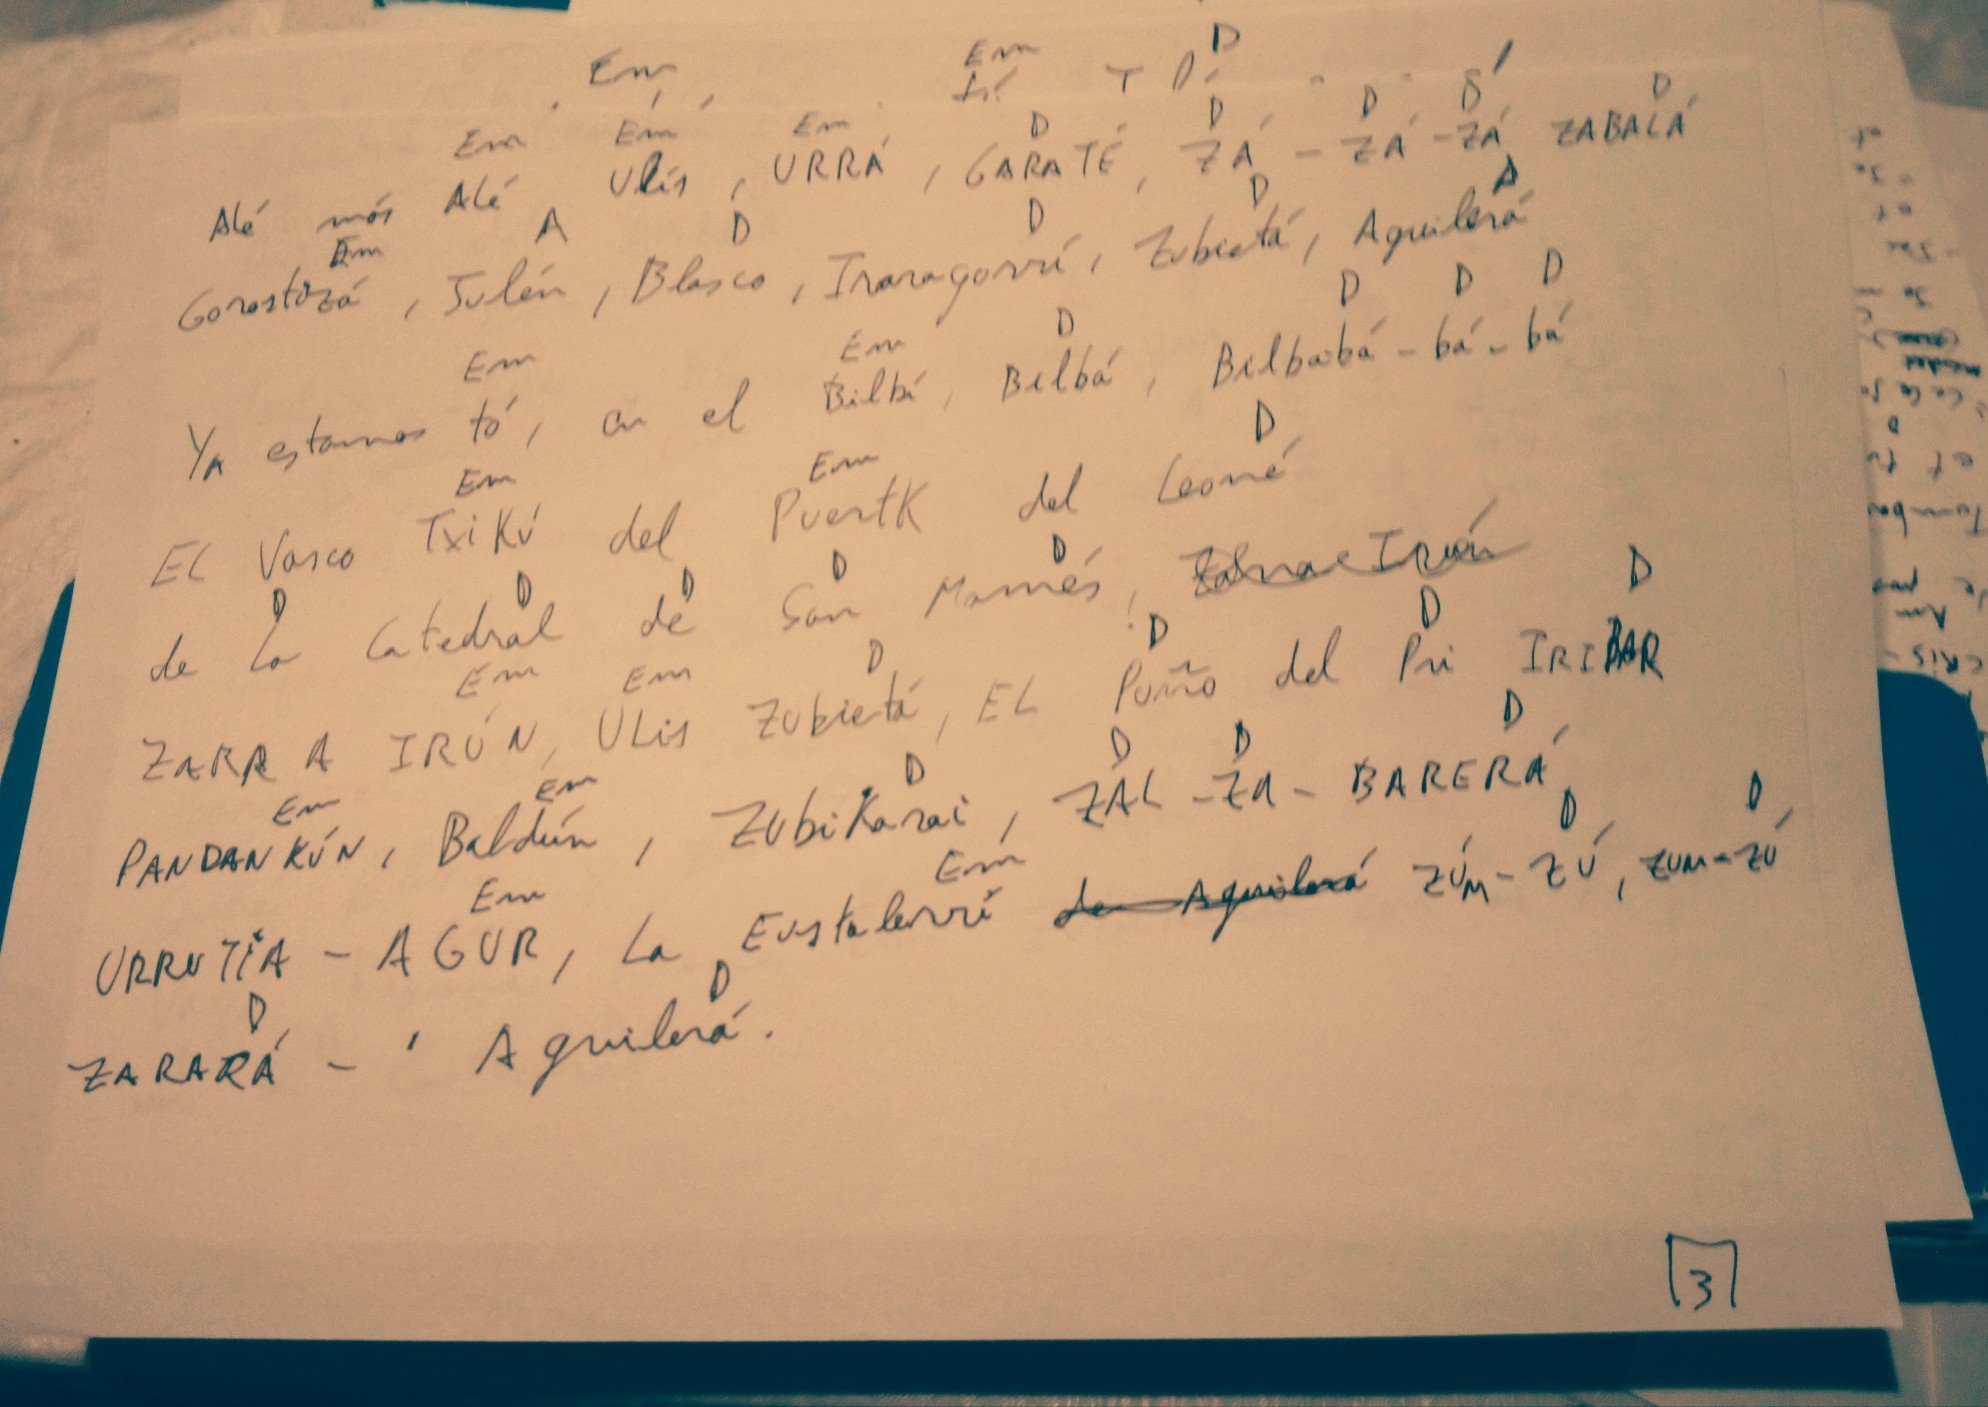 Em Em D
Em Em Em D D D D D
Alé mós Alé Ulis, URRÁ, GARATÉ, ZÁ - ZÁ - ZÁ ZABALÁ
Em A D D D A
Gorostizá, Julén, Blasco, Iraragorrí, Zubietá, Aguilerá
Em Em D D D D
Ya estamos tó, en el Bilbí, Bilbá, Bilbaibá - bá - bá
Em Em D
EL Vasco TxiKú del PuertK del Leoné
D D D D D
de la Catedral de San Mamés, Irún
Em Em D D D D
ZARR A IRÚN, ULis Zubietá, EL Puño del Pri IRIBAR
Em Em D D D D
PANDANKÚN, Baldún, ZubiKarai, ZÁL - ZA - BARERÁ,
Em Em D D
URRUTÍA - AGUR, La Eustalerrí de Aguilerá ZÚM - ZÚ, ZUM - ZÚ
D D
ZARARÁ - ' Aguilerá.
3